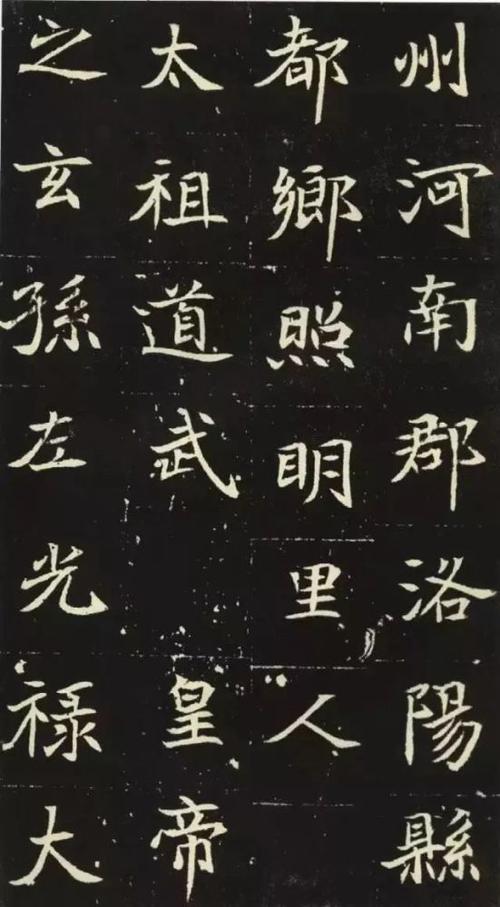 州河南郡洛陽縣
都鄉照明里人
太祖道武皇帝
之玄孫左光禄大